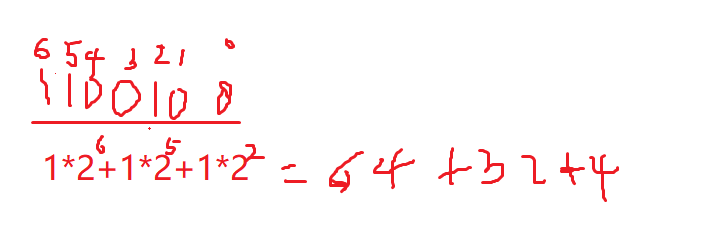 6 5 4 3 2 1 0
1 1 0 0 1 0 0
1*2⁶+1*2⁵+1*2² = 64 +32+4